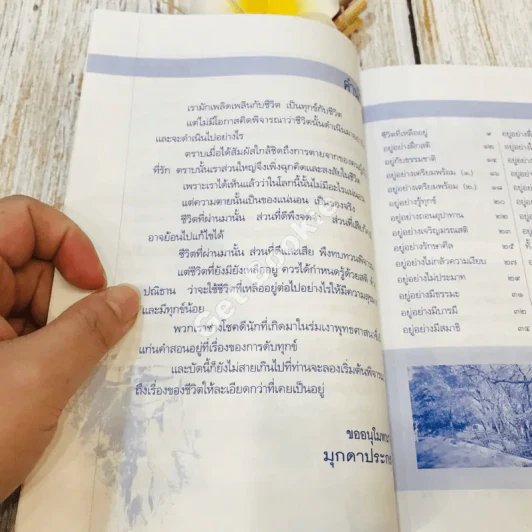 คำ
เรามักเพลิดเพลินกับชีวิต เป็นทุกข์กับชีวิต
แต่ไม่มีโอกาสคิดพิจารณาว่าชีวิตนั้นดำเนินมา
และจะดำเนินไปอย่างไร
ตราบเมื่อได้สัมผัสใกล้ชิดถึงการตายจากของ
ที่รัก ตราบนั้นเราส่วนใหญ่จึงเพิ่งฉุกคิดและสงสัยในชีวิต
เพราะเราได้เห็นแล้วว่าในโลกนี้นั้นไม่มีอะไรแน่นอน
แต่ความตายนั้นเป็นของแน่นอน เป็นของจริง
ชีวิตที่ผ่านมานั้น ส่วนที่ดีพึงจดจำ ส่วนที่เสีย
อาจย้อนไปแก้ไขได้
ชีวิตที่ผ่านมานั้น ส่วนที่ดีและเสีย พึงทบทวนพิจารณา
แต่ชีวิตที่ยังมียังเหลืออยู่ ควรได้กำหนดรู้ด้วยสติ
ปณิธาน ว่าจะใช้ชีวิตที่เหลืออยู่ต่อไปอย่างไรให้มีความสุข
และมีทุกข์น้อย
พวกเราช่างโชคดีนักที่เกิดมาในร่มเงาพุทธศาสนา
แก่นคำสอนอยู่ที่เรื่องของการดับทุกข์
และบัดนี้ก็ยังไม่สายเกินไปที่ท่านจะลองเริ่มต้นพิจารณา
ถึงเรื่องของชีวิตให้ละเอียดกว่าที่เคยเป็นอยู่
ขออนุโมทนา
มุกดาประกร
ชีวิตที่เหลืออยู่ ๙
อยู่อย่างมีกายสติ ๑๒
อยู่กับธรรมชาติ ๑๔
อยู่อย่างเตรียมพร้อม (๑.) ๑๖
อยู่อย่างเตรียมพร้อม (๒.) ๑๘
อยู่อย่างรู้ทุกข์ ๒๐
อยู่อย่างถอนอุปาทาน ๒๒
อยู่อย่างเจริญมรณสติ ๒๓
อยู่อย่างรักษาศีล ๒๕
อยู่อย่างไม่กลัวความเงียบ ๒๗
อยู่อย่างไม่ประมาท ๒๙
อยู่อย่างมีธรรมะ ๓๑
อยู่อย่างมีบารมี ๓๒
อยู่อย่างมีสมาธิ ๓๔